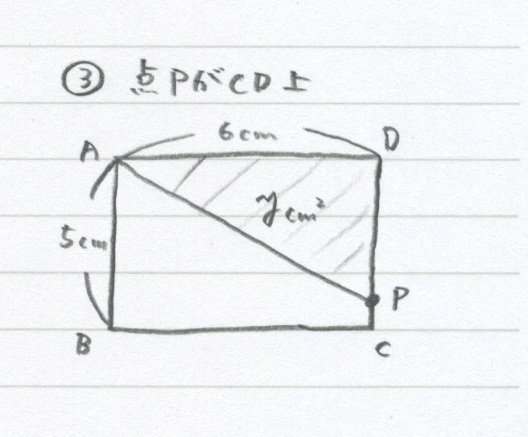 ③ 点PがCD上
6cm
A
D
ycm²
5cm
P
B
C